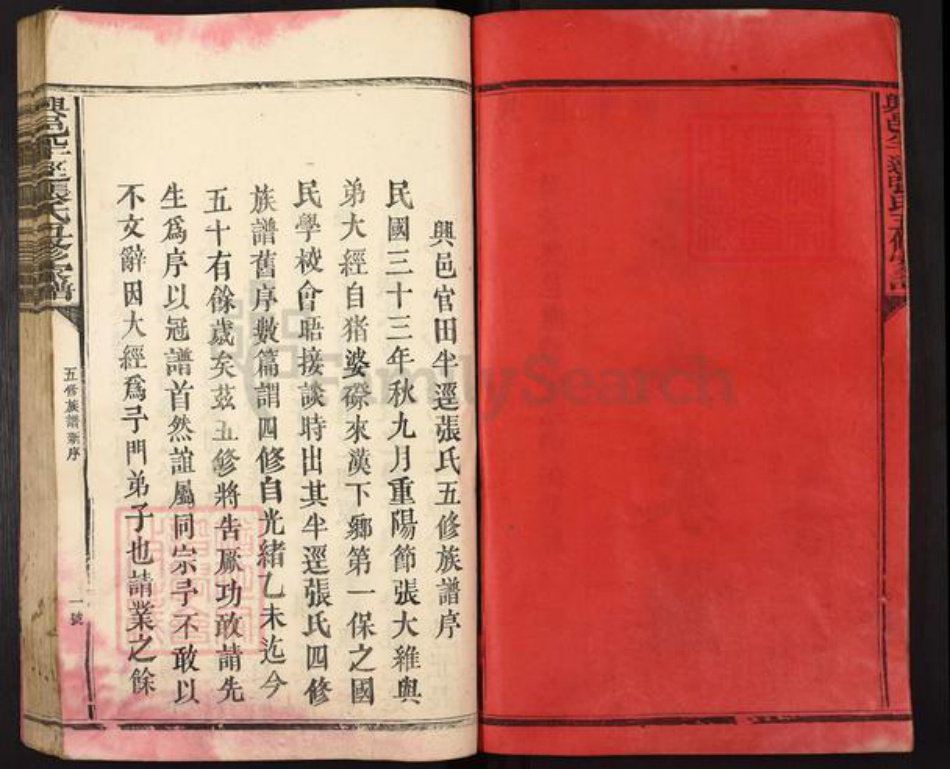 興邑官田半逕張氏五修族譜序
民國三十三年秋九月重陽節張大維與
弟大經自猪婆磜來漢下鄉第一保之國
民學校會晤接談時出其半逕張氏四修
族譜舊序數篇謂四修自光緒乙未迄今
五十有餘歲矣茲五修將告厥功敢請先
生為序以冠譜首然誼屬同宗予不敢以
不文辭因大經為予門弟子也請業之餘
五修族譜新序
一號
興邑半逕張氏五修宗譜
FamilySearch